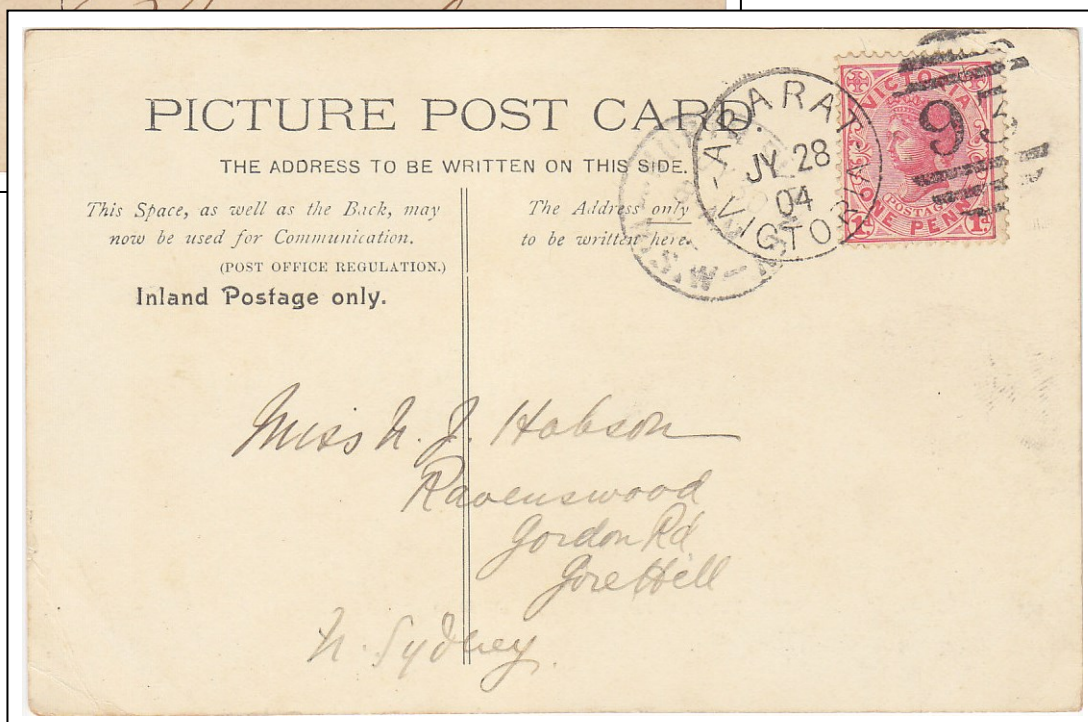 PICTURE POST CARD.
THE ADDRESS TO BE WRITTEN ON THIS SIDE.
This Space, as well as the Back, may
now be used for Communication.
(POST OFFICE REGULATION.)
Inland Postage only.
The Address only
to be written here.
ARARAT
JY 28
04
VICTORIA
VICTORIA
POSTAGE
1d ONE PENNY 1d
Miss N. J. Hobson
Ravenswood
Gordon Rd
Gore Hill
N. Sydney.